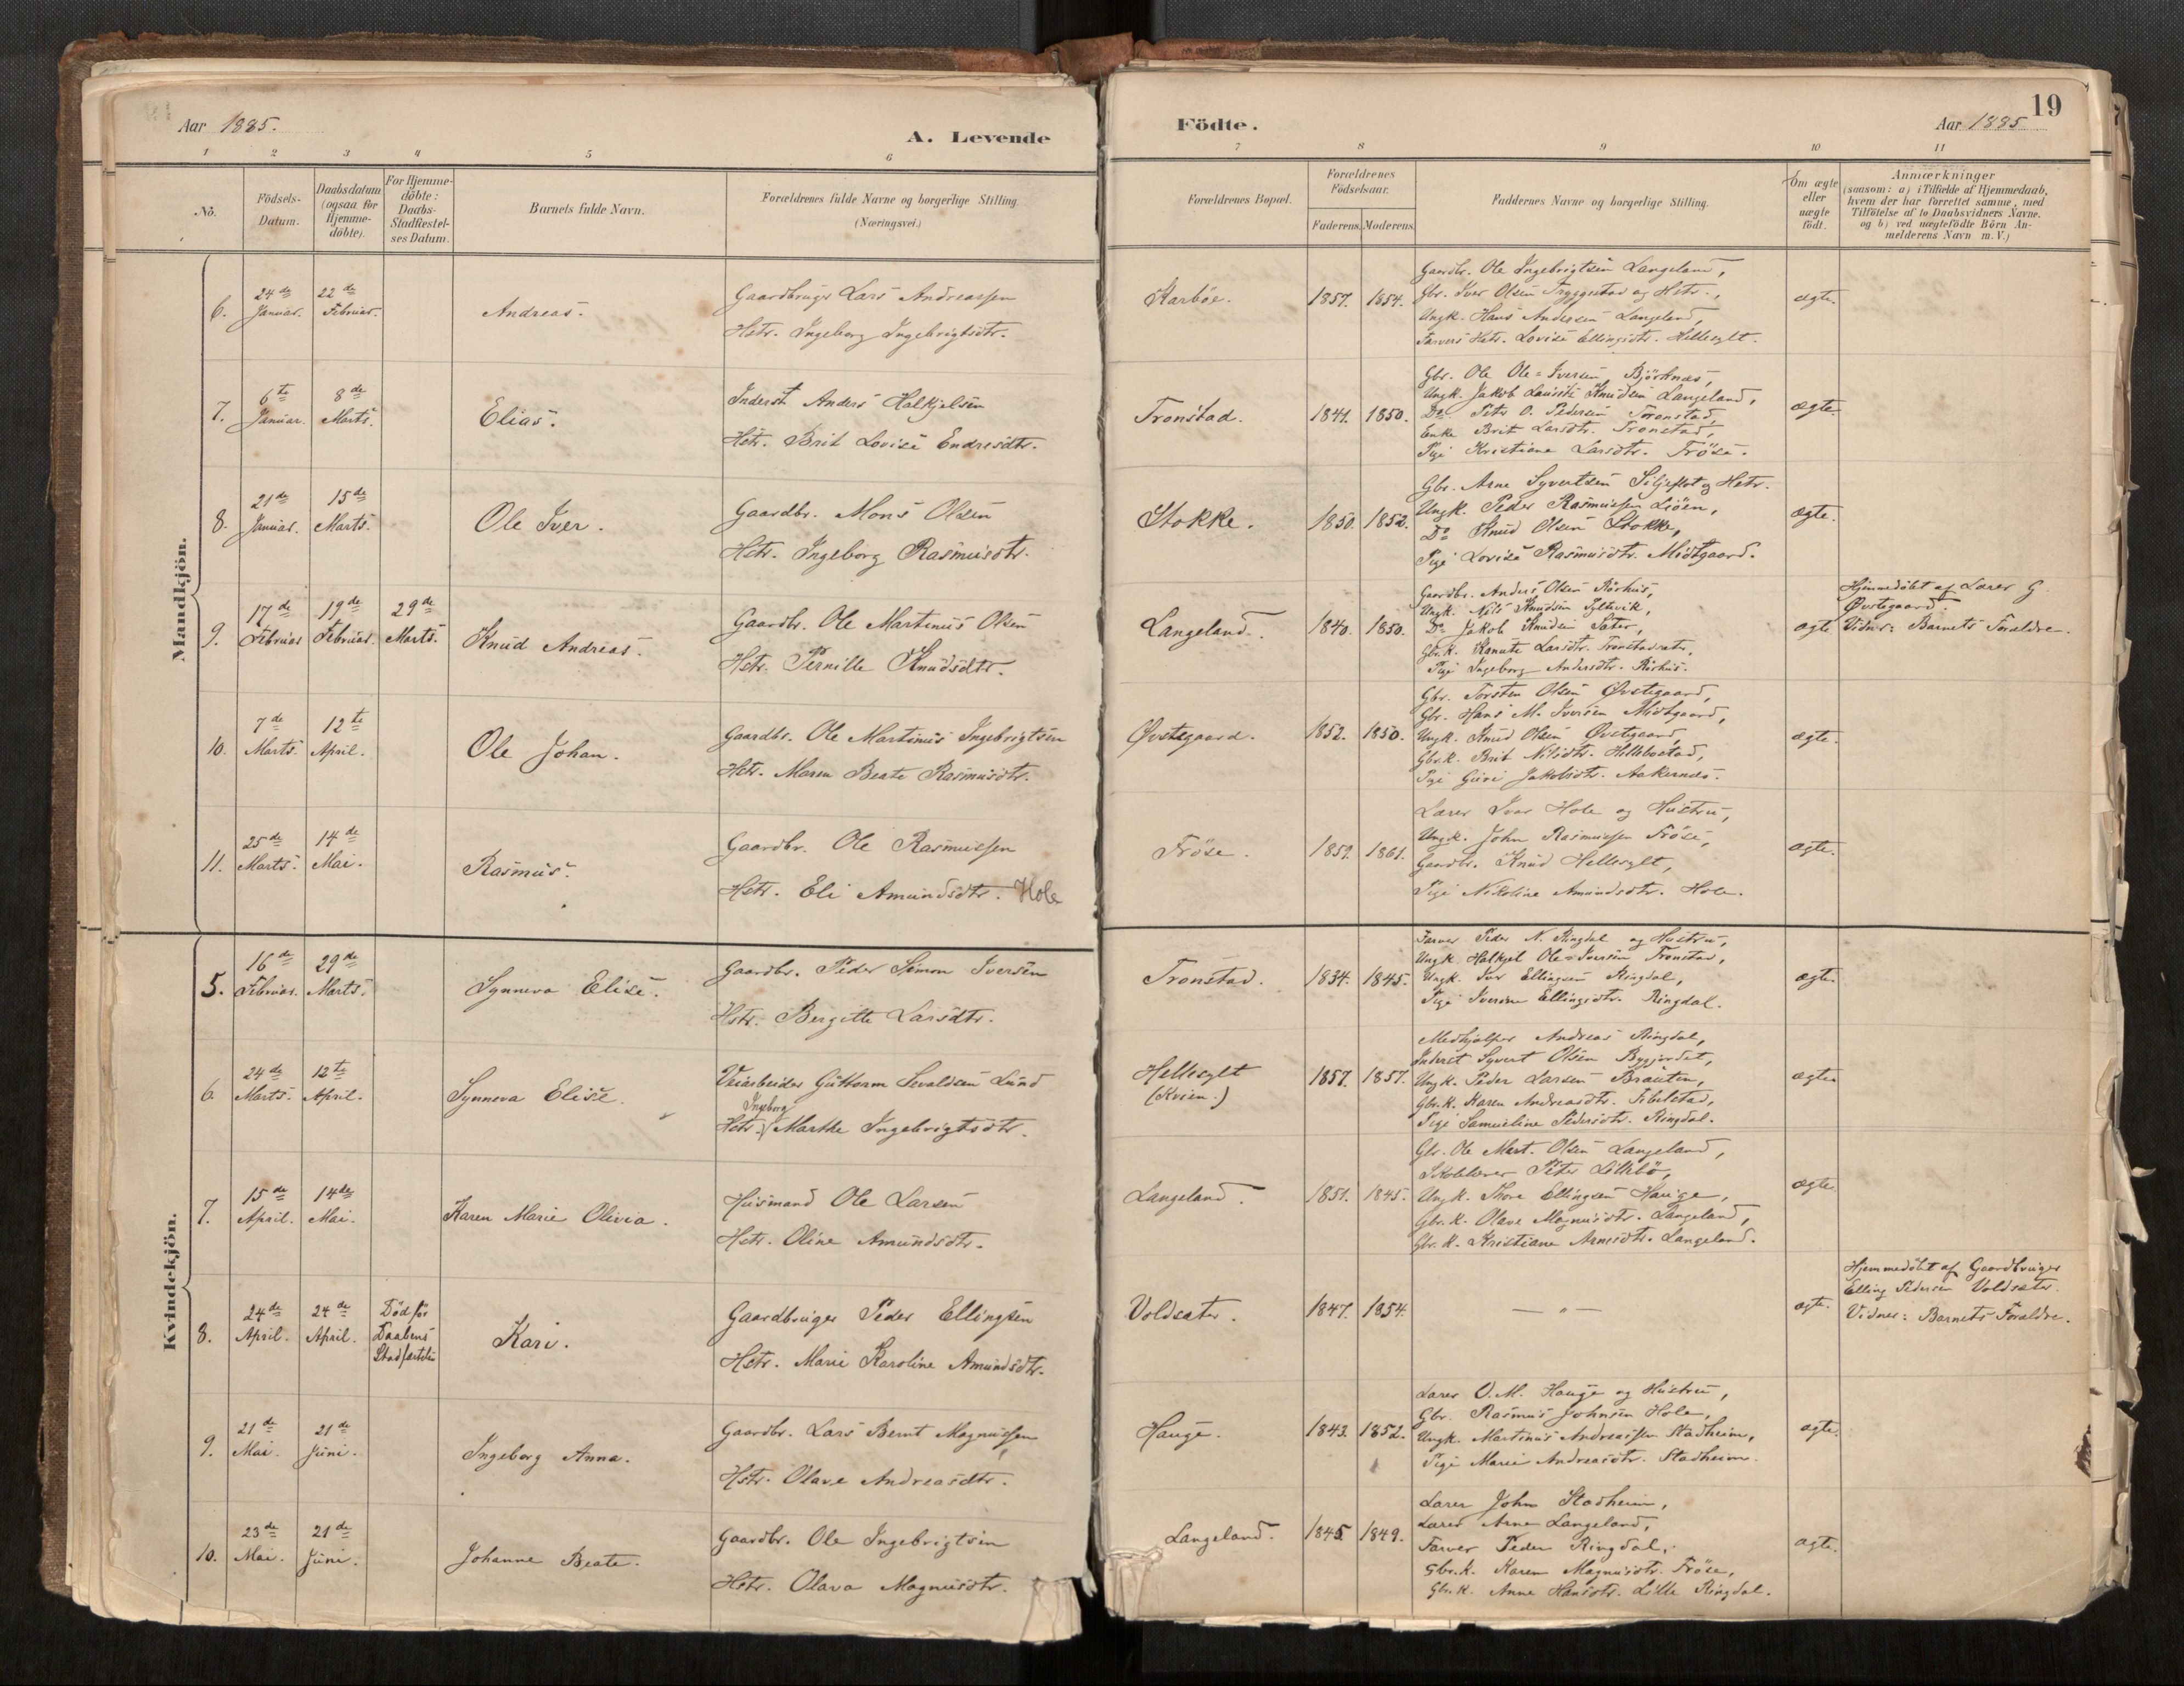 Aar 1885.
A. Levende
1 2 3 4 5 6
No.
Födsels-
Datum.
Daabsdatum
(ogsaa for
Hjemme-
döbte).
For Hjemme-
döbte:
Daabs-
Stadfæstel-
ses Datum.
Barnets fulde Navn.
Forældrenes fulde Navne og borgerlige Stilling
(Næringsvei.)
Mandkjön.
6. 24de Januar. 22de Februar. Andreas. Gaardbruger Lars Andreassen
Hstr. Ingeborg Ingebrigtsdtr.
7. 6te Januar. 8de Marts. Elias. Inderst Anders Halkjelsen
Hstr. Brit Lovise Endresdtr.
8. 21de Januar. 15de Marts. Ole Iver. Gaardbr. Mons Olsen
Hstr. Ingeborg Rasmusdtr.
9. 17de Februar 19de Februar. 29de Marts. Knud Andreas. Gaardbr. Ole Martinus Olsen
Hstr. Pernille Knudsdtr.
10. 7de Marts. 12te April. Ole Johan. Gaardbr. Ole Martinus Ingebrigtsen
Hstr. Maren Beate Rasmusdtr.
11. 25de Marts. 14de Mai. Rasmus. Gaardbr. Ole Rasmussen
Hstr. Eli Amundsdtr. Hole
Kvindekjön.
5. 16de Februar. 29de Marts. Synneva Elise. Gaardbr. Peder Simon Iversen
Hstr. Bergitte Larsdtr.
6. 24de Marts. 12te April. Synneva Elise. Veiarbeider Guttorm Sevaldsen Lund
Ingeborg
Hstr. Marthe Ingebrigtsdtr.
7. 15de April. 14de Mai. Karen Marie Olivia. Husmand Ole Larsen
Hstr. Oline Amundsdtr.
8. 24de April. 24de April. Död för Daabens Stadfæstelse Kari. Gaardbruger Peder Ellingsen
Hstr. Marie Karoline Amundsdtr.
9. 21de Mai. 21de Juni. Ingeborg Anna. Gaardbr. Lars Bernt Magnussen
Hstr. Olave Andreasdtr.
10. 23de Mai. 21de Juni. Johanne Beate. Gaardbr. Ole Ingebrigtsen
Hstr. Olava Magnusdtr.
19
Födte.
Aar 1885
7 8 9 10 11
Forældrenes Bopæl.
Forældrenes
Födselsaar.
Faderens. Moderens.
Faddernes Navne og borgerlige Stilling.
Om ægte
eller
uægte
födt.
Anmærkninger
(saasom: a) i Tilfælde af Hjemmedaab,
hvem der har forrettet samme, med
Tilföielse af to Daabsvidners Navne.
og b) ved uægtefödte Börn An-
melderens Navn m. V.)
Karböe. 1857. 1854. ægte.
Gaardbr. Ole Ingebrigtsen Langeland,
Gbr. Iver Olsen Tryggestad og Hstr.,
Ungk. Hans Andersen Langeland,
Farvers Hstr. Lovise Ellingsdtr. Hellesylt.
Tronstad. 1841. 1850. ægte.
Gbr. Ole Ole-Iversen Björknæs,
Ungk. Jakob Lauritz Knudsen Langeland,
Do Peter O. Pedersen Tronstad,
Enke Brit Larsdtr. Tronstad,
Pige Kristiane Larsdtr. Fröse.
Stokke. 1850. 1852. ægte.
Gbr. Arne Syvertsen Siljeflot og Hstr.
Ungk. Peder Rasmussen Liöen,
Do Knud Olsen Stokke,
Pige Lovise Rasmusdtr. Midtgaard.
Langeland. 1840. 1850. ægte
Gaardbr. Anders Olsen Rörhus,
Ungk. Nils Knudsen Syltevik,
Do Jakob Knudsen Sæter,
Gbr.K. Kanute Larsdtr. Tronstadsæter,
Pige Ingeborg Andersdtr. Rörhus.
Hjemmedöbt af Lærer G.
Østegaard.
Vidner: Barnets Forældre.
Øvstegaard. 1852. 1850. ægte.
Gbr. Torsten Olsen Øvstegaard,
Gbr. Hans M. Iversen Midtgaard,
Ungk. Knud Olsen Øvstegaard,
Gbr.K. Brit Nilsdtr. Hellebostad,
Pige Guri Jakobsdtr. Aakernæs.
Fröse. 1859. 1861. ægte.
Lærer Ivar Hole og Hustru,
Ungk. John Rasmussen Fröse,
Gaardbr. Knud Hellesylt,
Pige Nikoline Amundsdtr. Hole.
Tronstad. 1834. 1845. ægte.
Farver Peder N. Ringdal og Hustru,
Ungk. Halkjel Ole-Iversen Tronstad,
Ungk. Iver Ellingsen Ringdal,
Pige Iverine Ellingsdtr. Ringdal.
Hellesylt
(Kvien.) 1857. 1857. ægte
Medhjælper Andreas Ringdal,
Inderst Syvert Olsen Bygjordet,
Ungk. Peder Larsen Bråuten,
Gbr.K. Karen Andreasdtr. Fibelstad,
Pige Samueline Pedersdtr. Ringdal.
Langeland. 1851. 1845. ægte
Gbr. Ole Mart. Olsen Langeland,
Skolelærer Peter Lillebö,
Ungk. Thore Ellingsen Hauge,
Gbr.K. Olave Magnusdtr. Langeland,
Gbr.K. Kristiane Arnesdtr. Langeland.
Voldsæter. 1847. 1854. — " — ægte.
Hjemmedöbt af Gaardbruger
Elling Pedersen Voldsæter.
Vidner: Barnets Forældre.
Hauge. 1843. 1852. ægte.
Lærer O. M. Hauge og Hustru,
Gbr. Rasmus Johnsen Hole,
Ungk. Martinus Andreassen Stadheim,
Pige Marie Andreasdtr. Stadheim.
Langeland. 1845 1849. ægte.
Lærer John Stadheim,
Lærer Arne Langeland,
Farver Peder Ringdal,
Gbr.K. Karen Magnusdtr. Fröse,
Gbr.K. Anne Hansdtr. Lille Ringdal.